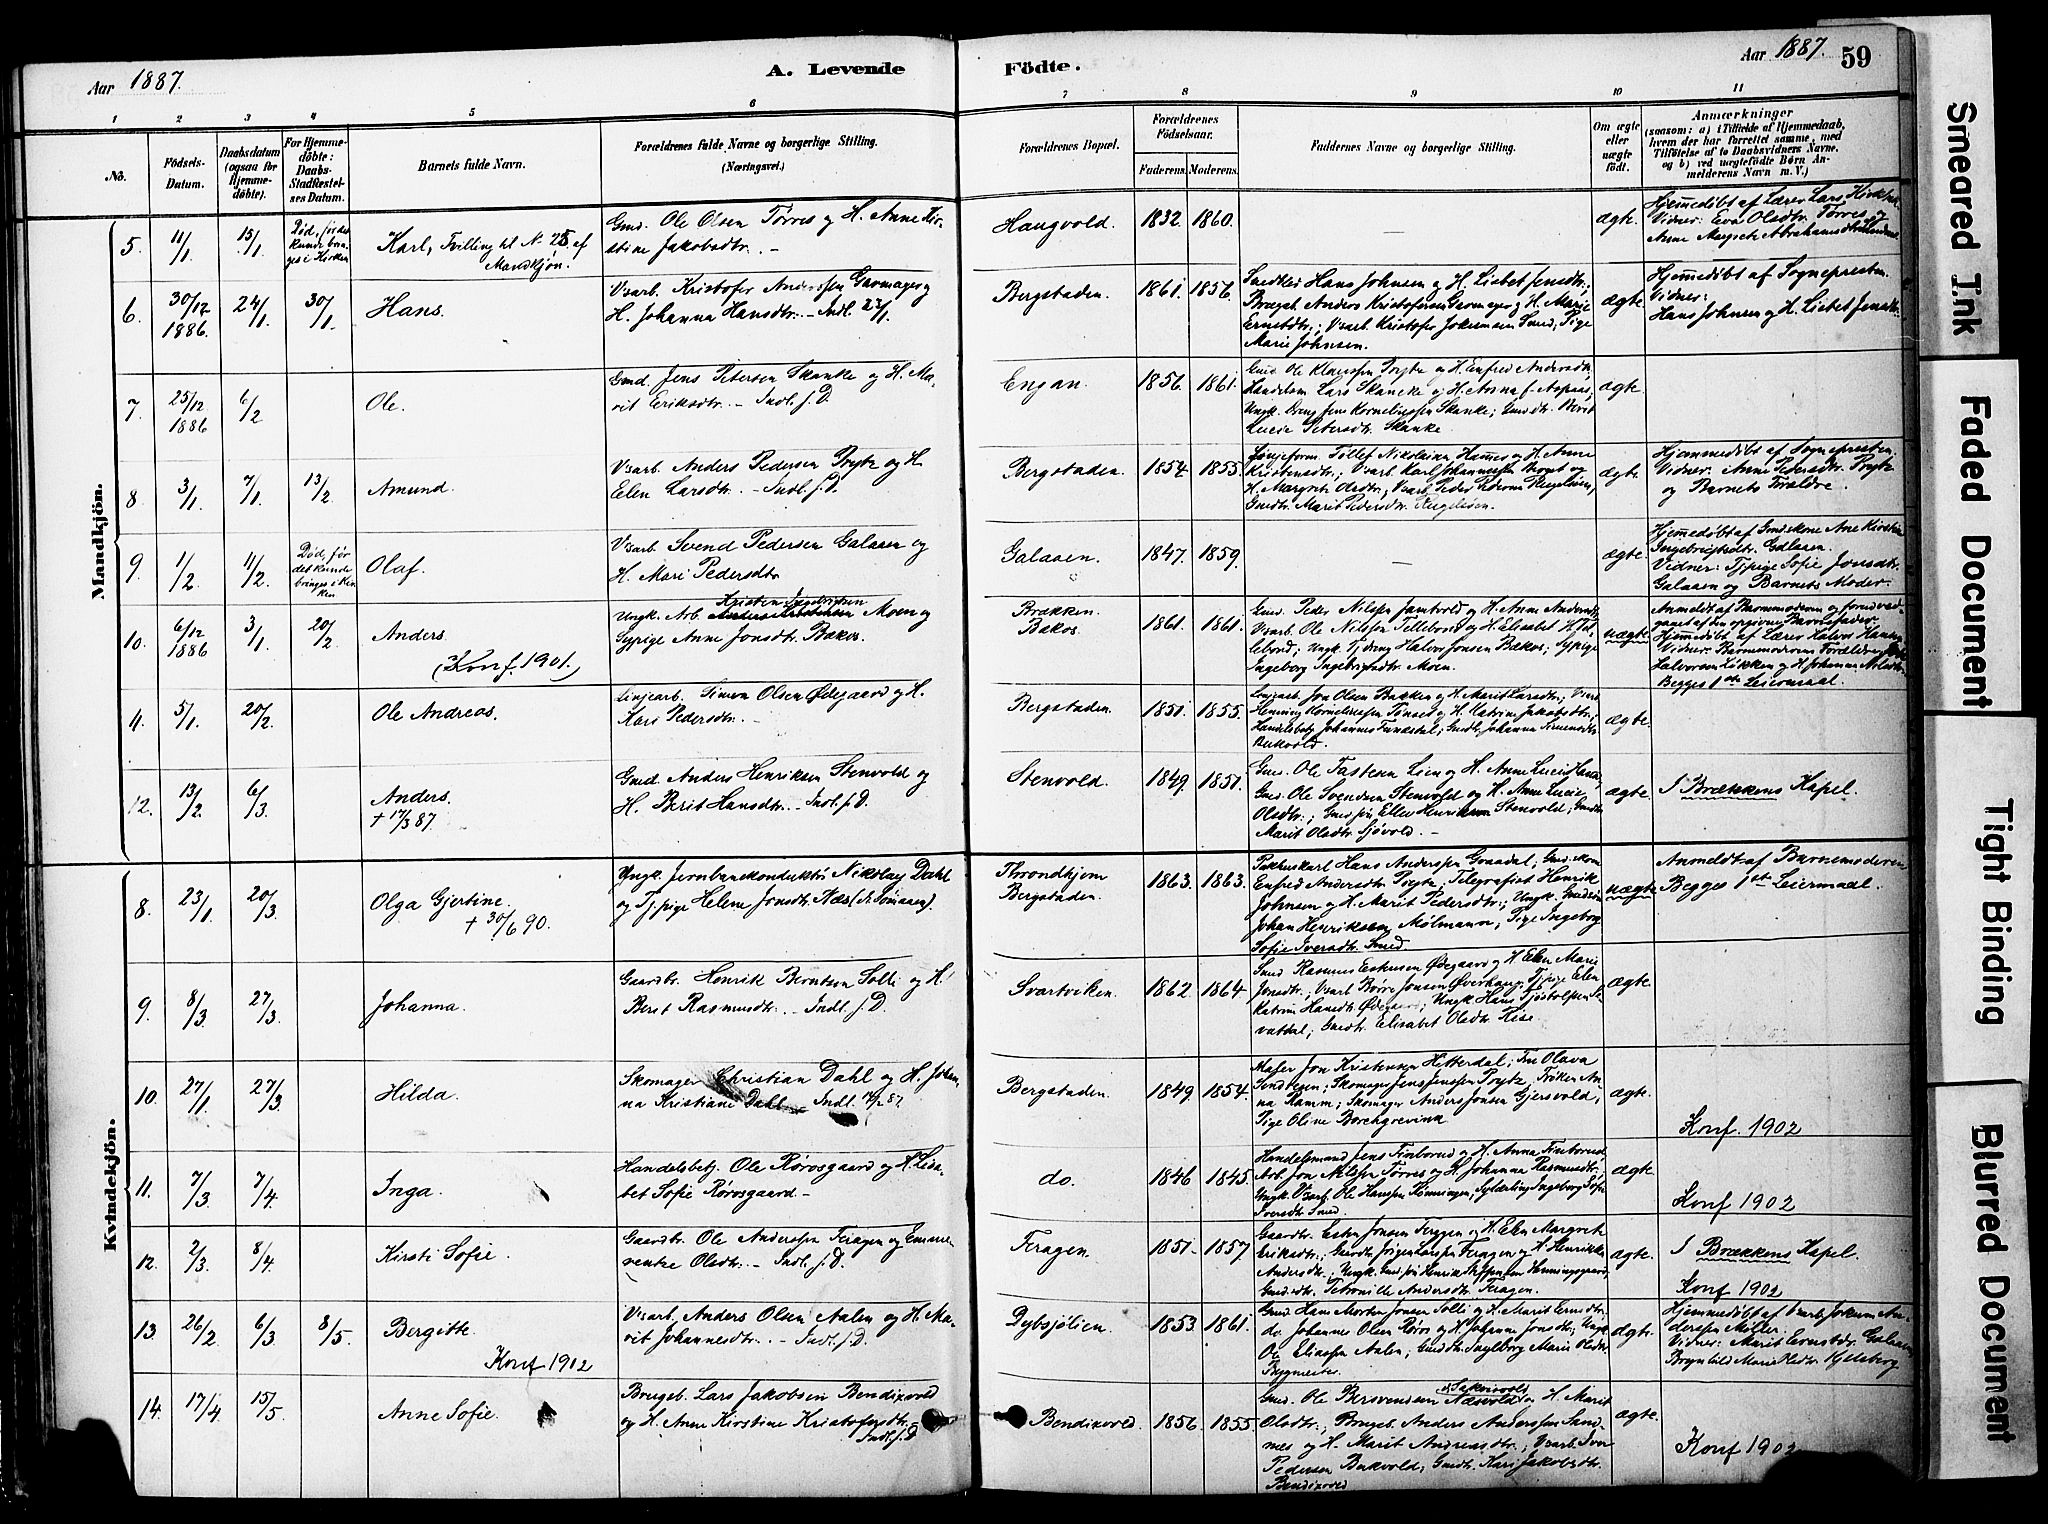 Aar 1887.
A. Levende Födte.
Aar 1887.
59
1 2 3 4 5 6 7 8 9 10 11
No.
Födsels-Datum.
Daabsdatum (ogsaa for Hjemmedöbte).
For Hjemmedöbte: Daabs-Stadfæstelses Datum.
Barnets fulde Navn.
Forældrenes fulde Navne og borgerlige Stilling.
(Næringsvei.)
Forældrenes Bopæl.
Forældrenes Födselsaar.
Faderens. Moderens.
Faddernes Navne og borgerlige Stilling.
Om ægte eller uægte födt.
Anmærkninger
(saasom: a) i Tilfælde af Hjemmedaab, hvem der har forrettet samme, med Tilföielse af to Daabsvidners Navne, og b) ved uægtefödte Börn Anmelderens Navn m. V.)
Mandkjön.
5. 11/1 15/1 Död, før det kunde bringes i Kirken
Karl, Tvilling til N. 25 af Mandkjøn.
Gmd. Ole Olsen Tørres og H. Anne Kirstine Jakobsdtr. —
Haugvold. 1832. 1860. — ægte.
Hjemmedöbt af Lærer Lars
Vidner: Eva Olsdtr. Tørres og
Anne Margrete Abrahamsdtr.
6. 30/12 1886. 24/1. 30/1. Hans.
Vsarb. Kristofer Anderssen Garmager og
H. Johanna Hansdtr. — Indl. 23/1.
Bergstaden. 1861. 1856.
Smedkl. Hans Johnsen og H. Lisbet Jensdtr.;
Brugsb. Anders Kristofersen Garmager og H. Marie
Ernstdtr.; Vsarb. Kristofer Jokumsen Smed; Pige
Marie Johnsen.
ægte.
Hjemmedöbt af Sognepresten.
Vidner:
Hans Johnsen og H. Lisbet Jensdtr.
7. 25/12 1886 6/2 Ole.
Gmd. Jens Petersen Skanke og H. Marit Eriksdtr. — Indl. f. D.
Engan. 1856. 1861.
Gmd. Ole Klaussen Prytz og H. Enfred Andersdtr.;
Lars Skancke og H. Anna f. Aspaas;
Ungk. Dreng Jens Korneliussen Skanke; Gmdtr. Berit
Lucie Petersdtr. Skanke.
ægte.
8. 3/1. 7/1. 13/2 Amund.
Vsarb. Anders Pedersen Prytz og H.
Elen Larsdtr. — Indl. f. D.
Bergstaden. 1854. 1855.
Tollef Nikolaisen Hannes og H. Anne
Kristensdtr.; Vsarb. Karl Johannessen og
H. Margrete Olsdtr.; Vsarb. Peder Pedersen
Gmdtr. Marit Pedersdtr.
ægte.
Hjemmedöbt af Sognepresten.
Vidner: Anne Pedersdtr. Prytz
og Barnets Forældre.
9. 1/2. 11/2. Död, før det kunde bringes i Kirken.
Olaf.
Vsarb. Svend Pedersen Galaaen og
H. Mari Pedersdtr.
Galaaen. 1847. 1859. — ægte.
Hjemmedöbt af Gmdskone Ane Kirstine
Ingebrigtsdtr. Galaaen.
Vidner: Tjpige Sofie Jonsdtr.
Galaaen og Barnets Moder.
10. 6/12 1886 3/1. 20/2 Anders.
(Konf. 1901.)
Ungk. Arb. Kristen Ingebrigtsen Moen og
Sypige Anne Jonsdtr. Bakos.
Brækken. Bakos. 1861. 1861.
Gmd. Peder Nilssen Jamtvold og H. Anne Andersdtr.;
Vsarb. Ole Nilssen Tillebond og H. Elisabet H. Tillebond; Ungk. Tjdreng Halvor Jonsen Bækos; Sypige
Ingeborg Ingebrigtsdtr. Moen.
uægte.
Anmeldt af Barnemoderen og
af den opgivne Barnefader.
Hjemmedöbt af Lærer Halvor Hansen
Vidner: Barnemoderens Forældre
Halvorsen Løkken og H. Johanna
Begges 1ste Leiermaal.
11. 5/1. 20/2. Ole Andreas.
Linjearb. Simon Olsen Ødegaard og H.
Kari Pedersdtr. —
Bergstaden. 1851. 1855.
Linjearb. Jon Olsen Bakken og H. Marit Larsdtr.; Vsarb.
Henning Korneliussen Tønset og H. Katrine Jakobsdtr.;
Handelsbetj. Johannes Funæsdal; Gmdtr. Johanna
Bukvold.
ægte.
12. 13/2. 6/3. Anders.
+ 17/3 87.
Gmd. Anders Henriksen Stenvold og
H. Berit Hansdtr. — Indl. f. D.
Stenvold. 1849. 1851.
Gmd. Ole Tastesen Lien og H. Anne Lucie
Gmd. Ole Svendsen Stenvold og H. Anne Lucie
Olsdtr.; Gmdsøn Ellev Henriksen Stenvold; Gmdtr.
Marit Olsdtr. Sjövold. —
ægte.
I Brækkens Kapel.
Kvindekjön.
8. 23/1. 20/3. Olga Gjertine.
+ 30/6 90.
Ungk. Jernbanekonduktör Nikolay Dahl
og Tjpige Helene Jonsdtr. Næs (
Throndhjem Bergstaden. 1863. 1863.
Pakhuskarl Hans Anderssen Graadal; Gmdskone
Enfred Andersdtr. Prytz; Telegrafist Henrik
Johnsen og H. Marit Pedersdtr.; Ungk. Gmdsøn
Johan Henriksen Mölmann; Pige Ingeborg
Sofie Iversdtr. Smed
uægte
Anmeldt af Barnemoderen
Begges 1ste Leiermaal.
9. 8/3. 27/3. Johanna.
Gaardbr. Henrik Berntsen Solli og H.
Berit Rasmusdtr. — Indl. f. D.
Svartviken. 1862. 1864.
Gmd. Rasmus Eskesen Ødegaard og H. Elen Marie
Jonsdtr.; Vsarb. Börre Jonsen Øverhaug; Tjpige Elen
Katrine Hansdtr. Ødegaard; Ungk. Hans
Gmdtr. Elisabet Olsdtr. Reise.
ægte.
10. 27/1. 27/3. Hilda.
Skomager Christian Dahl og H. Johanna Kristiane Dahl. — Indl.
Bergstaden. 1849 1854.
Maler Jon Kristensen Hitterdal; Fru Olava
Jens Jenssen Prytz; Fröken Anna Ramm; Skomager Anders Jonsen Gjersvold;
Pige Oline Borchgrevink
ægte.
Konf. 1902
11. 7/3. 7/4. Inga.
Handelsbetj. Ole Rørosgaard og H. Lisabet Sofie Rørosgaard —
do. 1846 1845.
Handelsmand Jens Finborud og H. Anna Finborud;
Arb. Jon Nilssen Tørres og H. Johanna Rasmusdtr.;
Ungk. Vsarb. Ole Hanssen Rønningen; Sylærling Ingeborg Sofie
Iversdtr. Smed.
ægte.
Konf 1902
12. 2/3. 8/4. Kirsti Sofie.
Gaardbr. Ole Anderssen Feragen og Emmerentze Olsdtr. — Indl. f. D.
Feragen. 1851. 1857
Gaardbr. Esten Jonsen Feragen og H. Elen Margrete
Eriksdtr.; Gaardbr. Jörgen Larssen Feragen og H. Henrikke
Andersdtr.; Ungk. Gmdsøn Henrik Steffensen Henningsgaard;
Gmdsdtr. Petronille Andersdtr. Feragen.
ægte.
I Brækkens Kapel.
Konf 1902
13. 26/2. 6/3. 8/5. Bergitte.
Konf 1902
Vsarb. Anders Olsen Aalen og H. Marit Johannesdtr. — Indl. f. D.
Dybsjölien. 1853. 1861.
Gmd. Hans Morten Jonsen Solli og H. Marit Ernsdtr.
do. Johannes Olsen Röros og H. Johanne Jonsdtr.; Ungk.
Ole Eliassen Aalen; Gmdtr. Ingeborg Marie Olsdtr.
ægte.
Hjemmedöbt af Vsarb. Jokum Anderssen Möller.
Vidner: Marit Ernstdtr. Galaaen
Brynhild Marie Olsdtr. Kjelsberg
14. 17/4. 15/5. Anne Sofie.
Brugsb. Lars Jakobsen Bendixvold
og H. Anne Kirstine Kristofersdtr.
Indl. f. D
Bendixvold. 1856. 1855.
Gmd. Ole Bersvendsen Næsvold og H. Marit
Olsdtr.; Brugsb. Anders Anderssen Sandnes og H. Marit Andreasdtr.; Vsarb. Iver
Pedersen Bukvold; Gmdtr. Kari Jakobsdtr.
Bendixvold
ægte.
Konf 1902
Smeared Ink
Faded Document
Tight Binding
Blurred Document